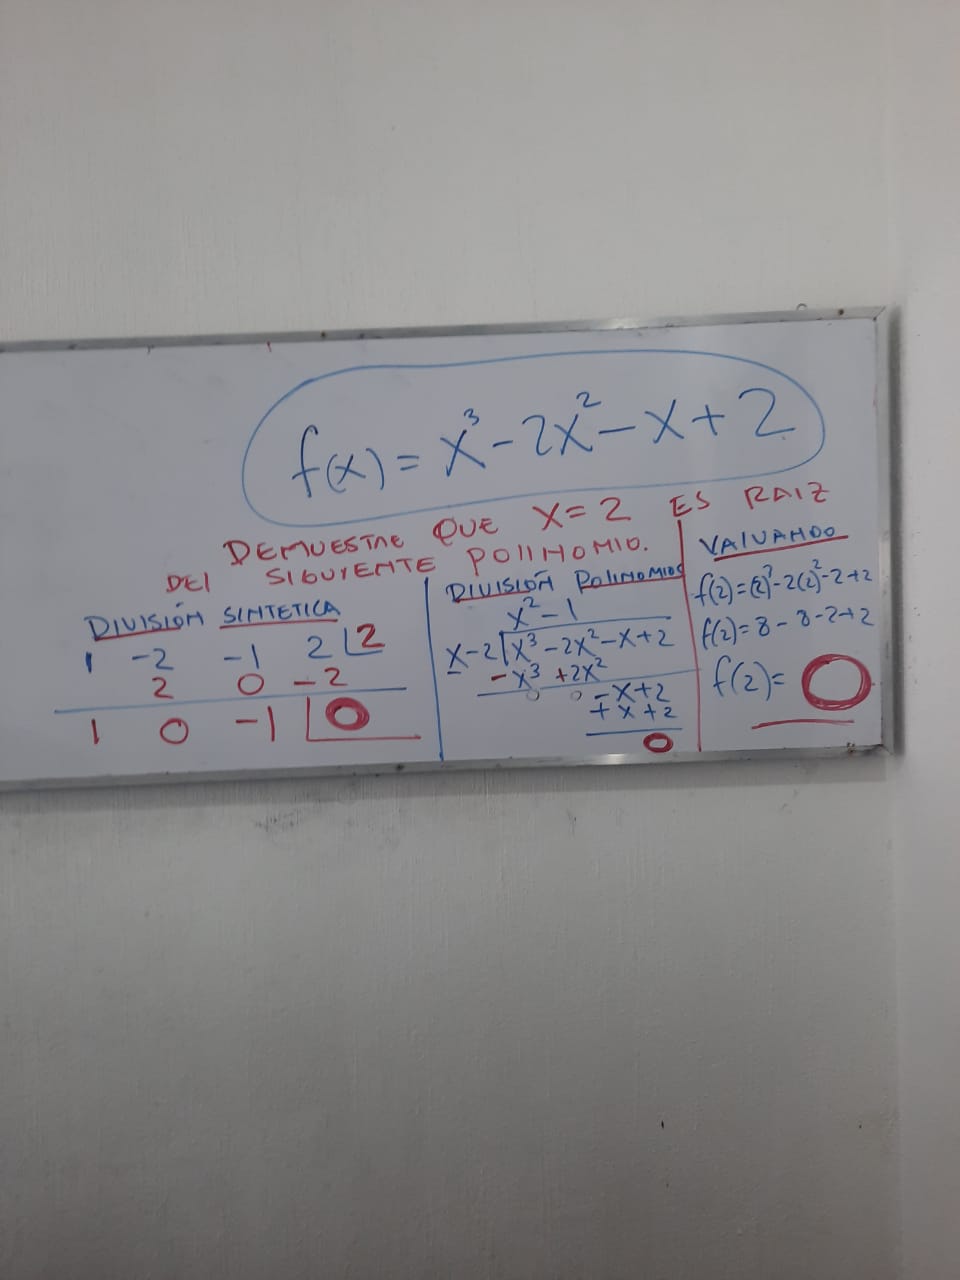 f(x) = x³ - 2x² - x + 2
DEMUESTRE QUE X = 2 ES RAIZ
DEL SIGUIENTE POLINOMIO.
DIVISIÓN SINTETICA
1 -2 -1 2 |2
2 0 -2
1 0 -1 |0
DIVISIÓN POLINOMIOS
x² - 1
x - 2 | x³ - 2x² - x + 2
- x³ + 2x²
0 0 - x + 2
+ x + 2
0
VALUANDO
f(2) = (2)³ - 2(2)² - 2 + 2
f(2) = 8 - 8 - 2 + 2
f(2) = 0